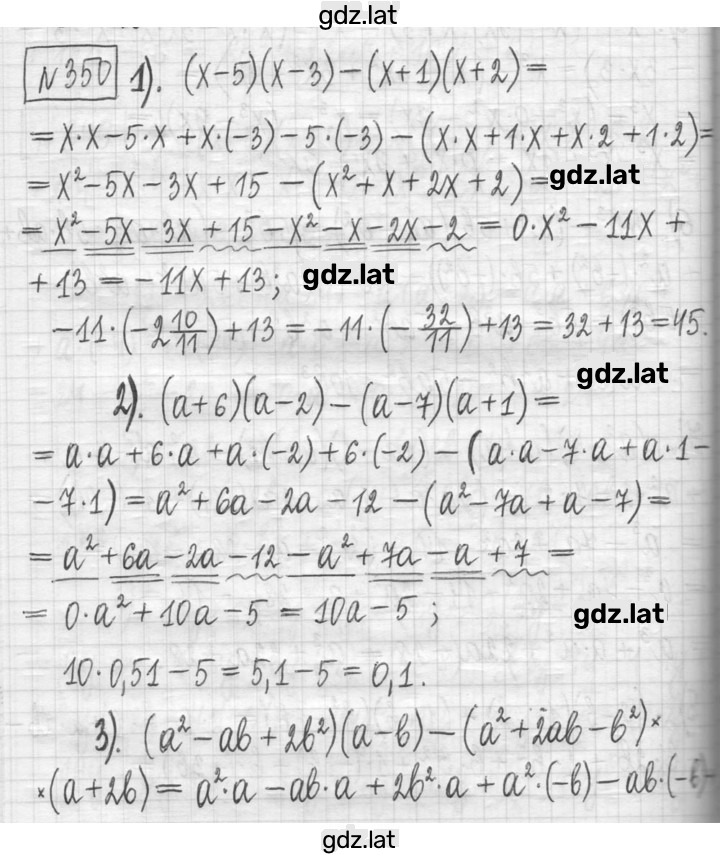 gdz.lat
№350 1). (x-5)(x-3)-(x+1)(x+2)=
=x·x-5·x+x·(-3)-5·(-3)-(x·x+1·x+x·2+1·2)=
=x²-5x-3x+15-(x²+x+2x+2)= gdz.lat
=x²-5x-3x+15-x²-x-2x-2=0·x²-11x+
+13=-11x+13; gdz.lat
-11·(-2 10/11)+13=-11·(-32/11)+13=32+13=45.
gdz.lat
2). (a+6)(a-2)-(a-7)(a+1)=
=a·a+6·a+a·(-2)+6·(-2)-(a·a-7·a+a·1-
-7·1)=a²+6a-2a-12-(a²-7a+a-7)=
=a²+6a-2a-12-a²+7a-a+7=
=0·a²+10a-5=10a-5; gdz.lat
10·0,51-5=5,1-5=0,1.
3). (a²-ab+2b²)(a-b)-(a²+2ab-b²)×
×(a+2b)=a²·a-ab·a+2b²·a+a²·(-b)-ab·(-b)-
gdz.lat